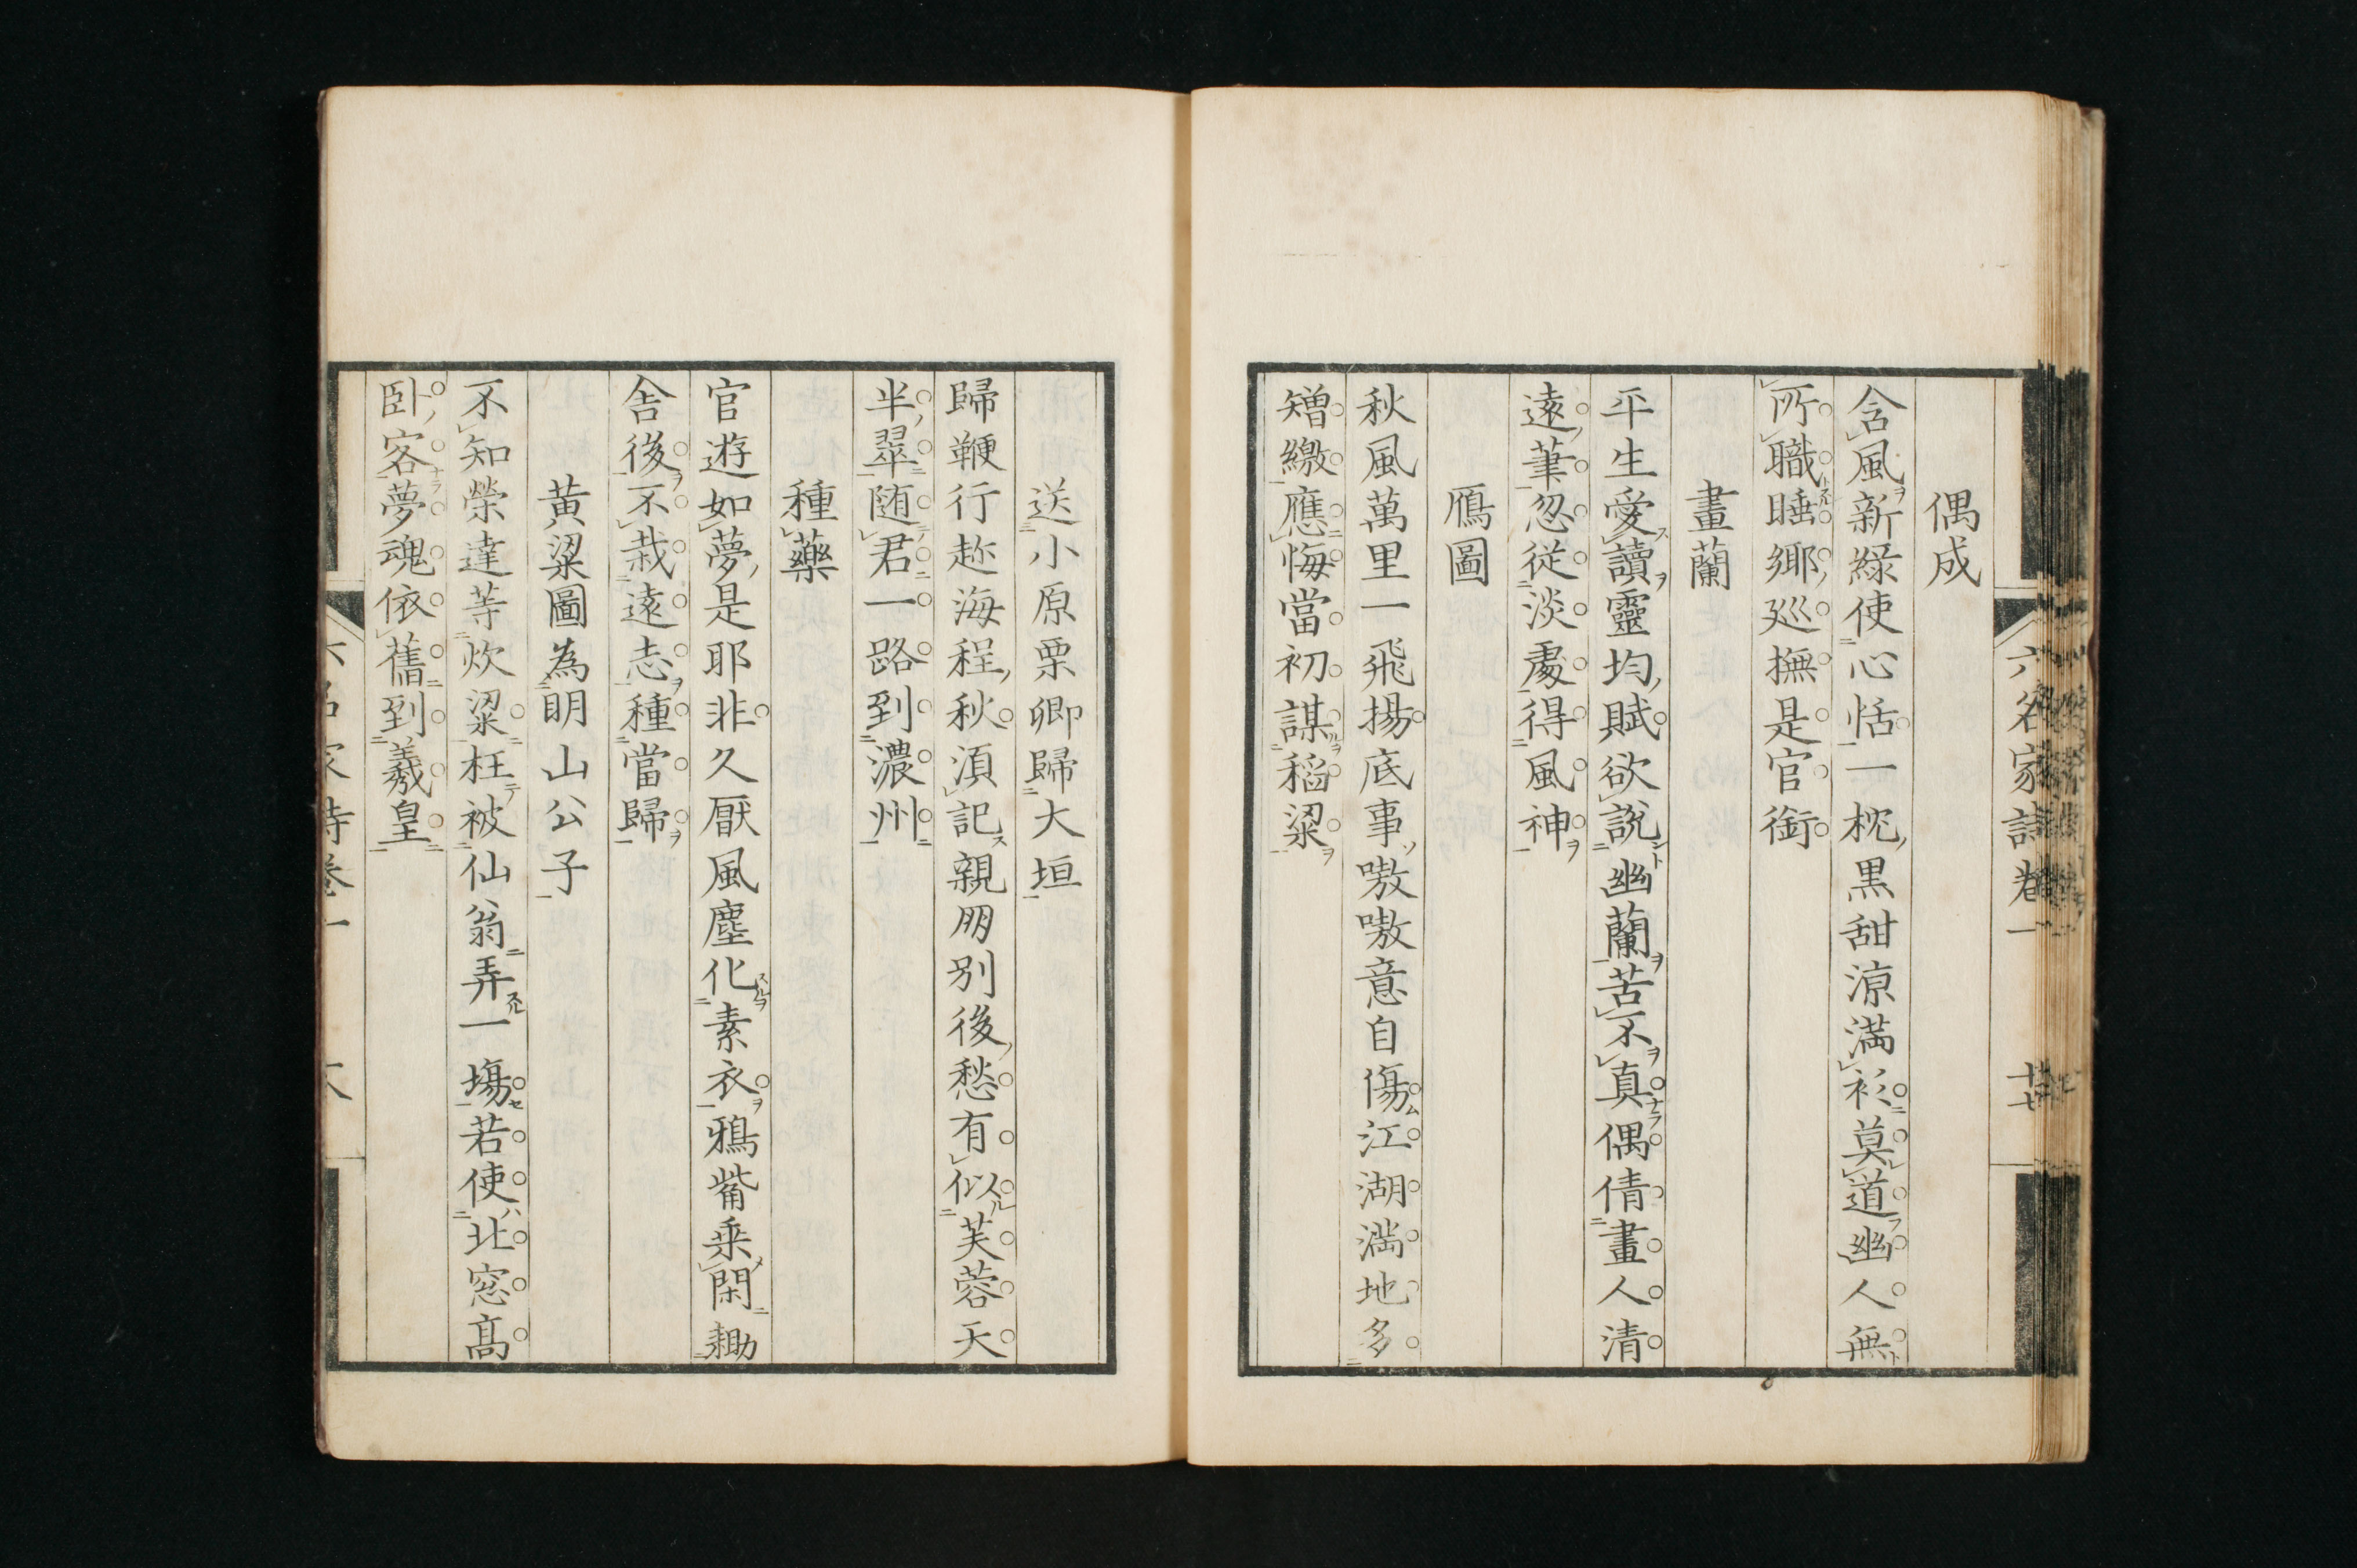 六名家詩卷一
十七
偶成
含風新綠使心恬一枕黒甜凉満衫莫道幽人無
所職睡鄉廵撫是官銜
畫蘭
平生愛讀靈均賦欲說幽蘭苦不真偶倩畫人清
遠筆忽從淡處得風神
鴈圖
秋風萬里一飛揚底事嗷嗷意自傷江湖満地多
矰繳應悔當初謀稻粱
送小原栗卿歸大垣
歸鞭行趂海程秋湏記親朋別後愁有似芙蓉天
半翠随君一路到濃州
種藥
官遊如夢是耶非久厭風塵化素衣鴉觜乗閑鋤
舎後不栽遠志種當歸
黄粱圖為明山公子
不知榮達等炊粱枉被仙翁弄一塲若使北窓髙
卧客夢魂依舊到羲皇